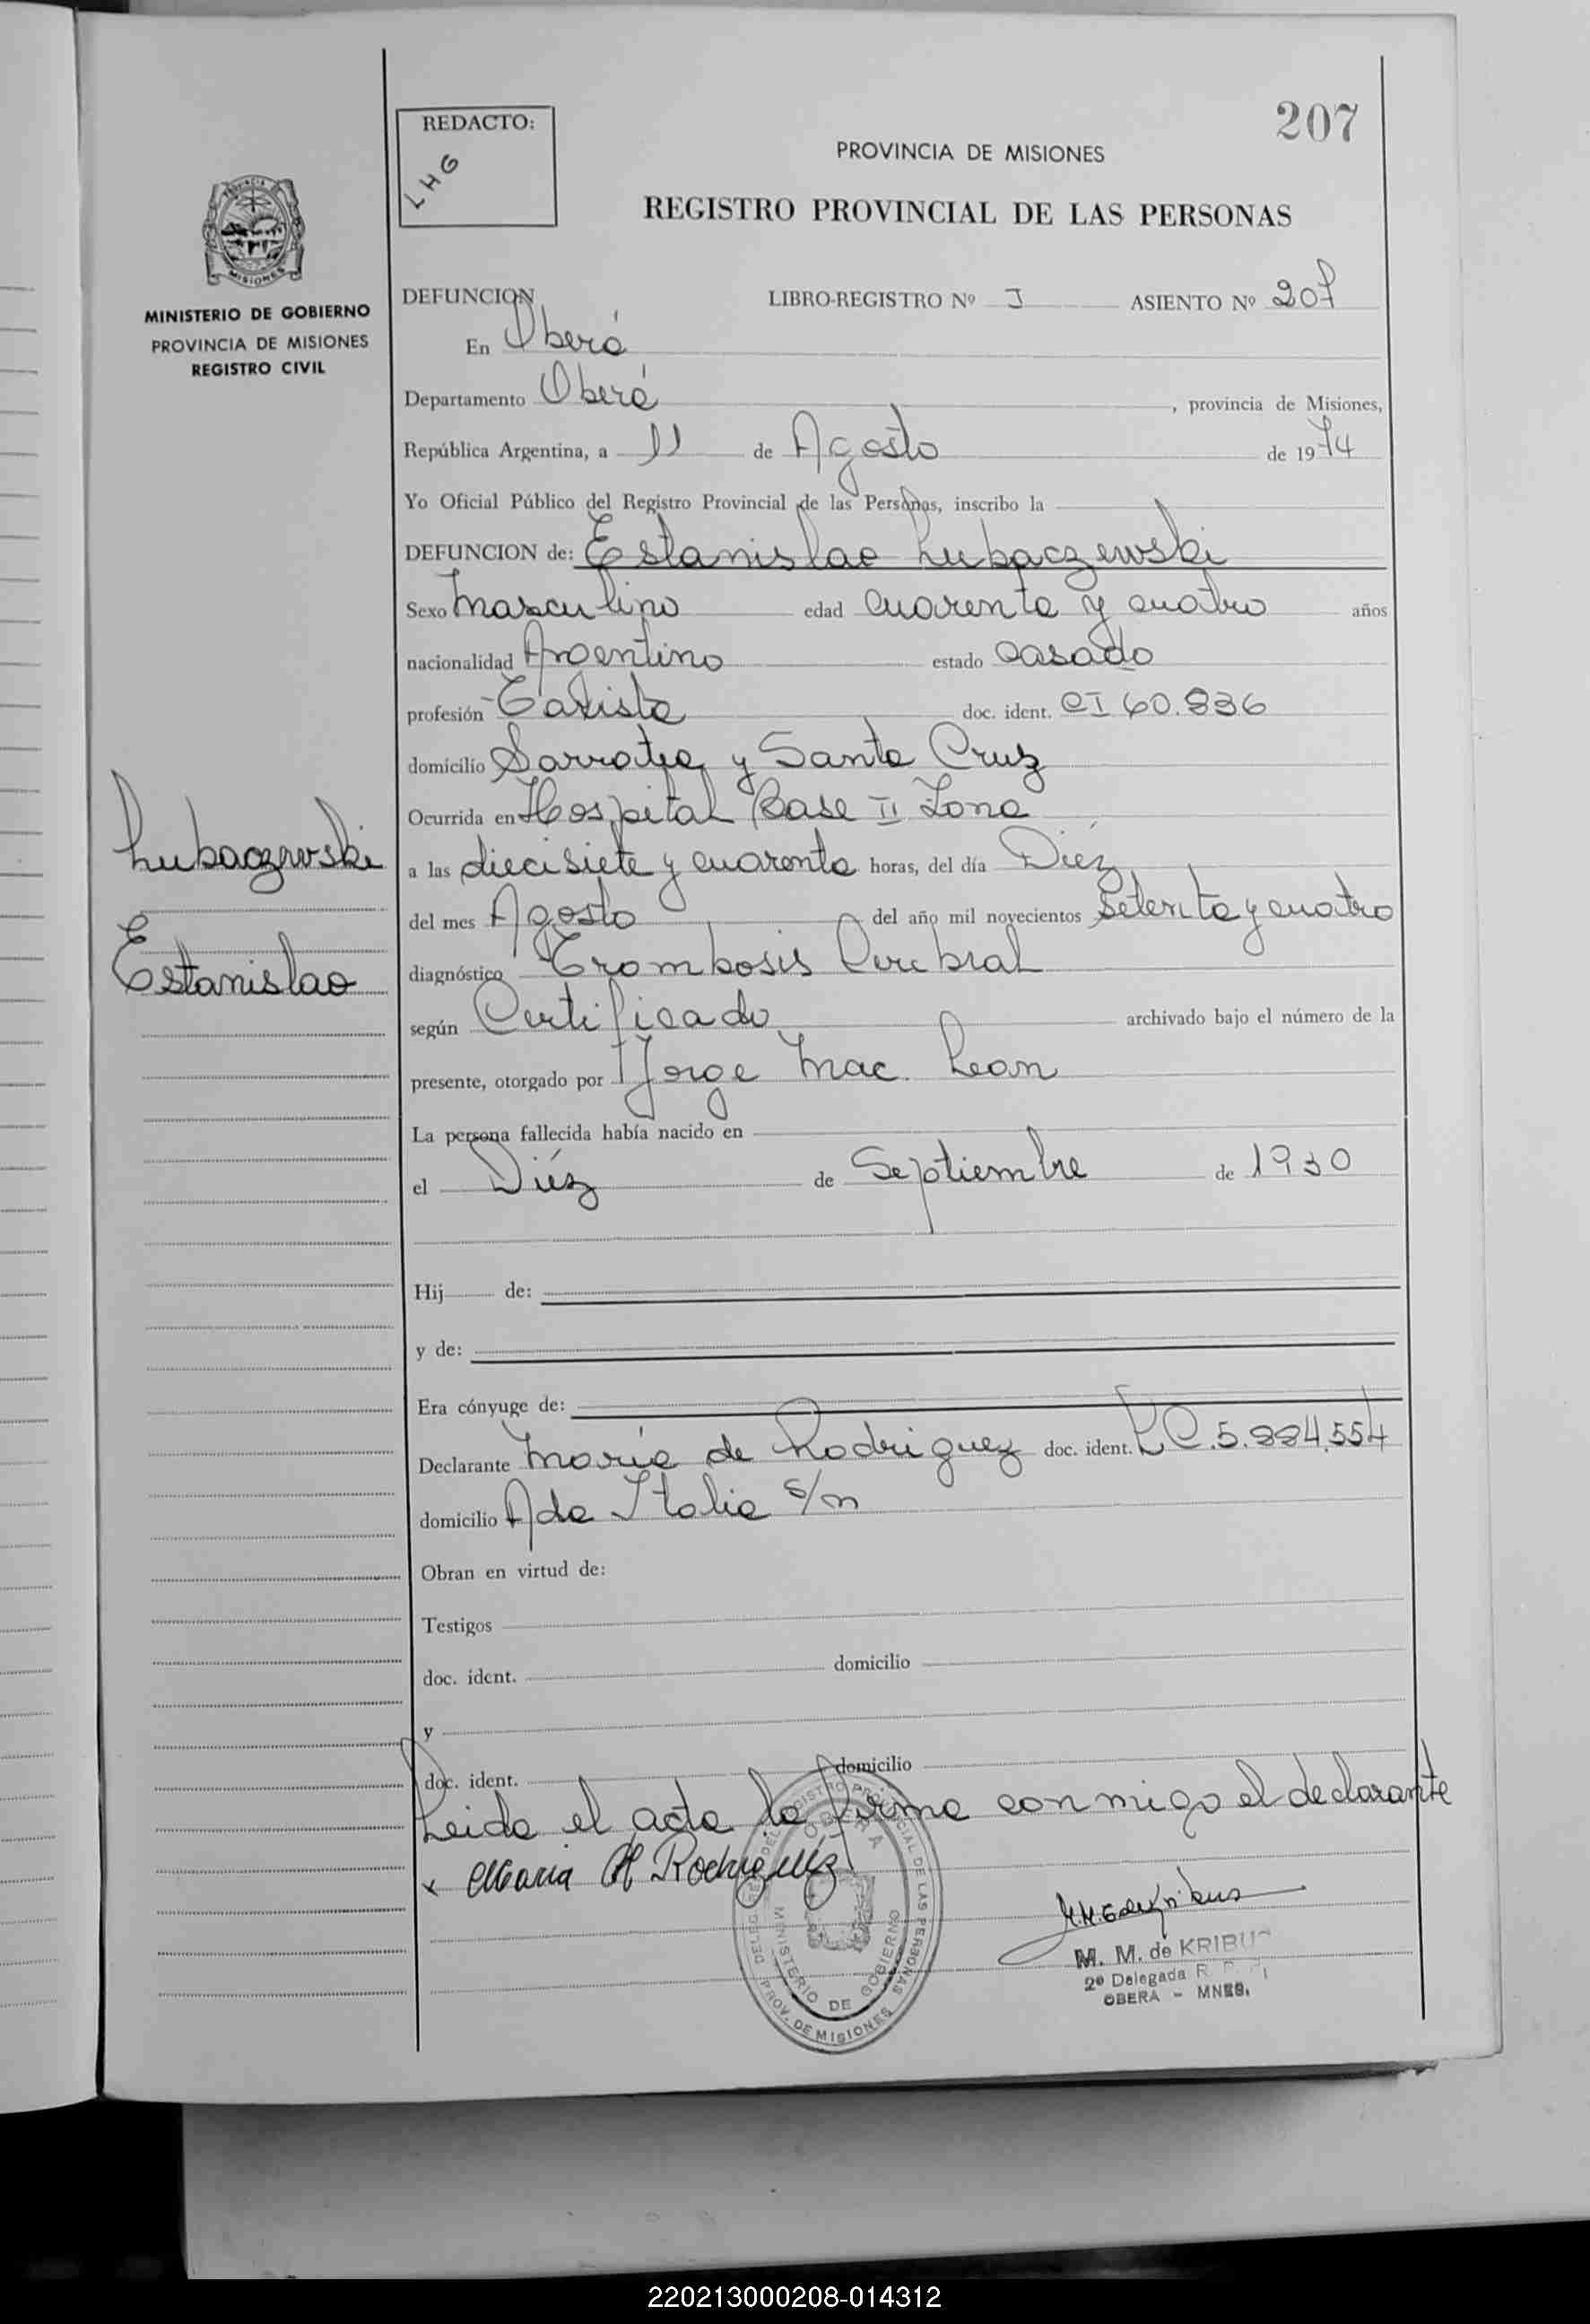 207
REDACTO:
LHG
PROVINCIA DE MISIONES
REGISTRO PROVINCIAL DE LAS PERSONAS
MINISTERIO DE GOBIERNO
PROVINCIA DE MISIONES
REGISTRO CIVIL
DEFUNCION LIBRO-REGISTRO Nº I ASIENTO Nº 207
En Oberá
Departamento Oberá, provincia de Misiones,
República Argentina, a 11 de Agosto de 1974
Yo Oficial Público del Registro Provincial de las Personas, inscribo la
DEFUNCION de: Estanislao Lubaczewski
Sexo Masculino edad Cuarenta y cuatro años
nacionalidad Argentino estado Casado
profesión Taxista doc. ident. CI 60.836
domicilio Sarratea y Santa Cruz
Ocurrida en Hospital Base II Zona
a las diecisiete y cuarenta horas, del día Diéz
del mes Agosto del año mil novecientos Setenta y cuatro
diagnóstico Trombosis Cerebral
según Certificado archivado bajo el número de la
presente, otorgado por Jorge Mac. Leon
La persona fallecida había nacido en
el Diéz de Septiembre de 1930
Hij de:
y de:
Era cónyuge de:
Declarante María de Rodriguez doc. ident. LC.5.884.554
domicilio Avda Italia s/n
Obran en virtud de:
Testigos
doc. ident. domicilio
y
doc. ident. domicilio
Leida el acta la firma conmigo el declarante
x Maria H Rodriguez
M. M. de KRIBUS
2º Delegada R. P.
OBERA - MNES.
OBERA
MINISTERIO DE GOBIERNO
PROV. DE MISIONES
Lubaczewski
Estanislao
220213000208-014312